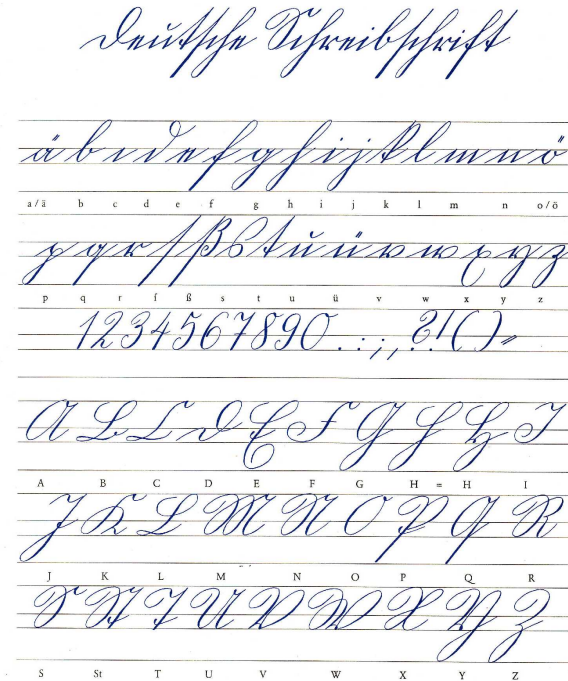 Deutsche Schreibschrift
ä b c d e f g h i j k l m n ö
a/ä b c d e f g h i j k l m n o/ö
p q r ſ ß s t u ü v w x y z
p q r f ß s t u ü v w x y z
1234567890.:;,?!()„
A B C D E F G H H I
A B C D E F G H = H I
J K L M N O P Q R
J K L M N O P Q R
S St T U V W X Y Z
S St T U V W X Y Z